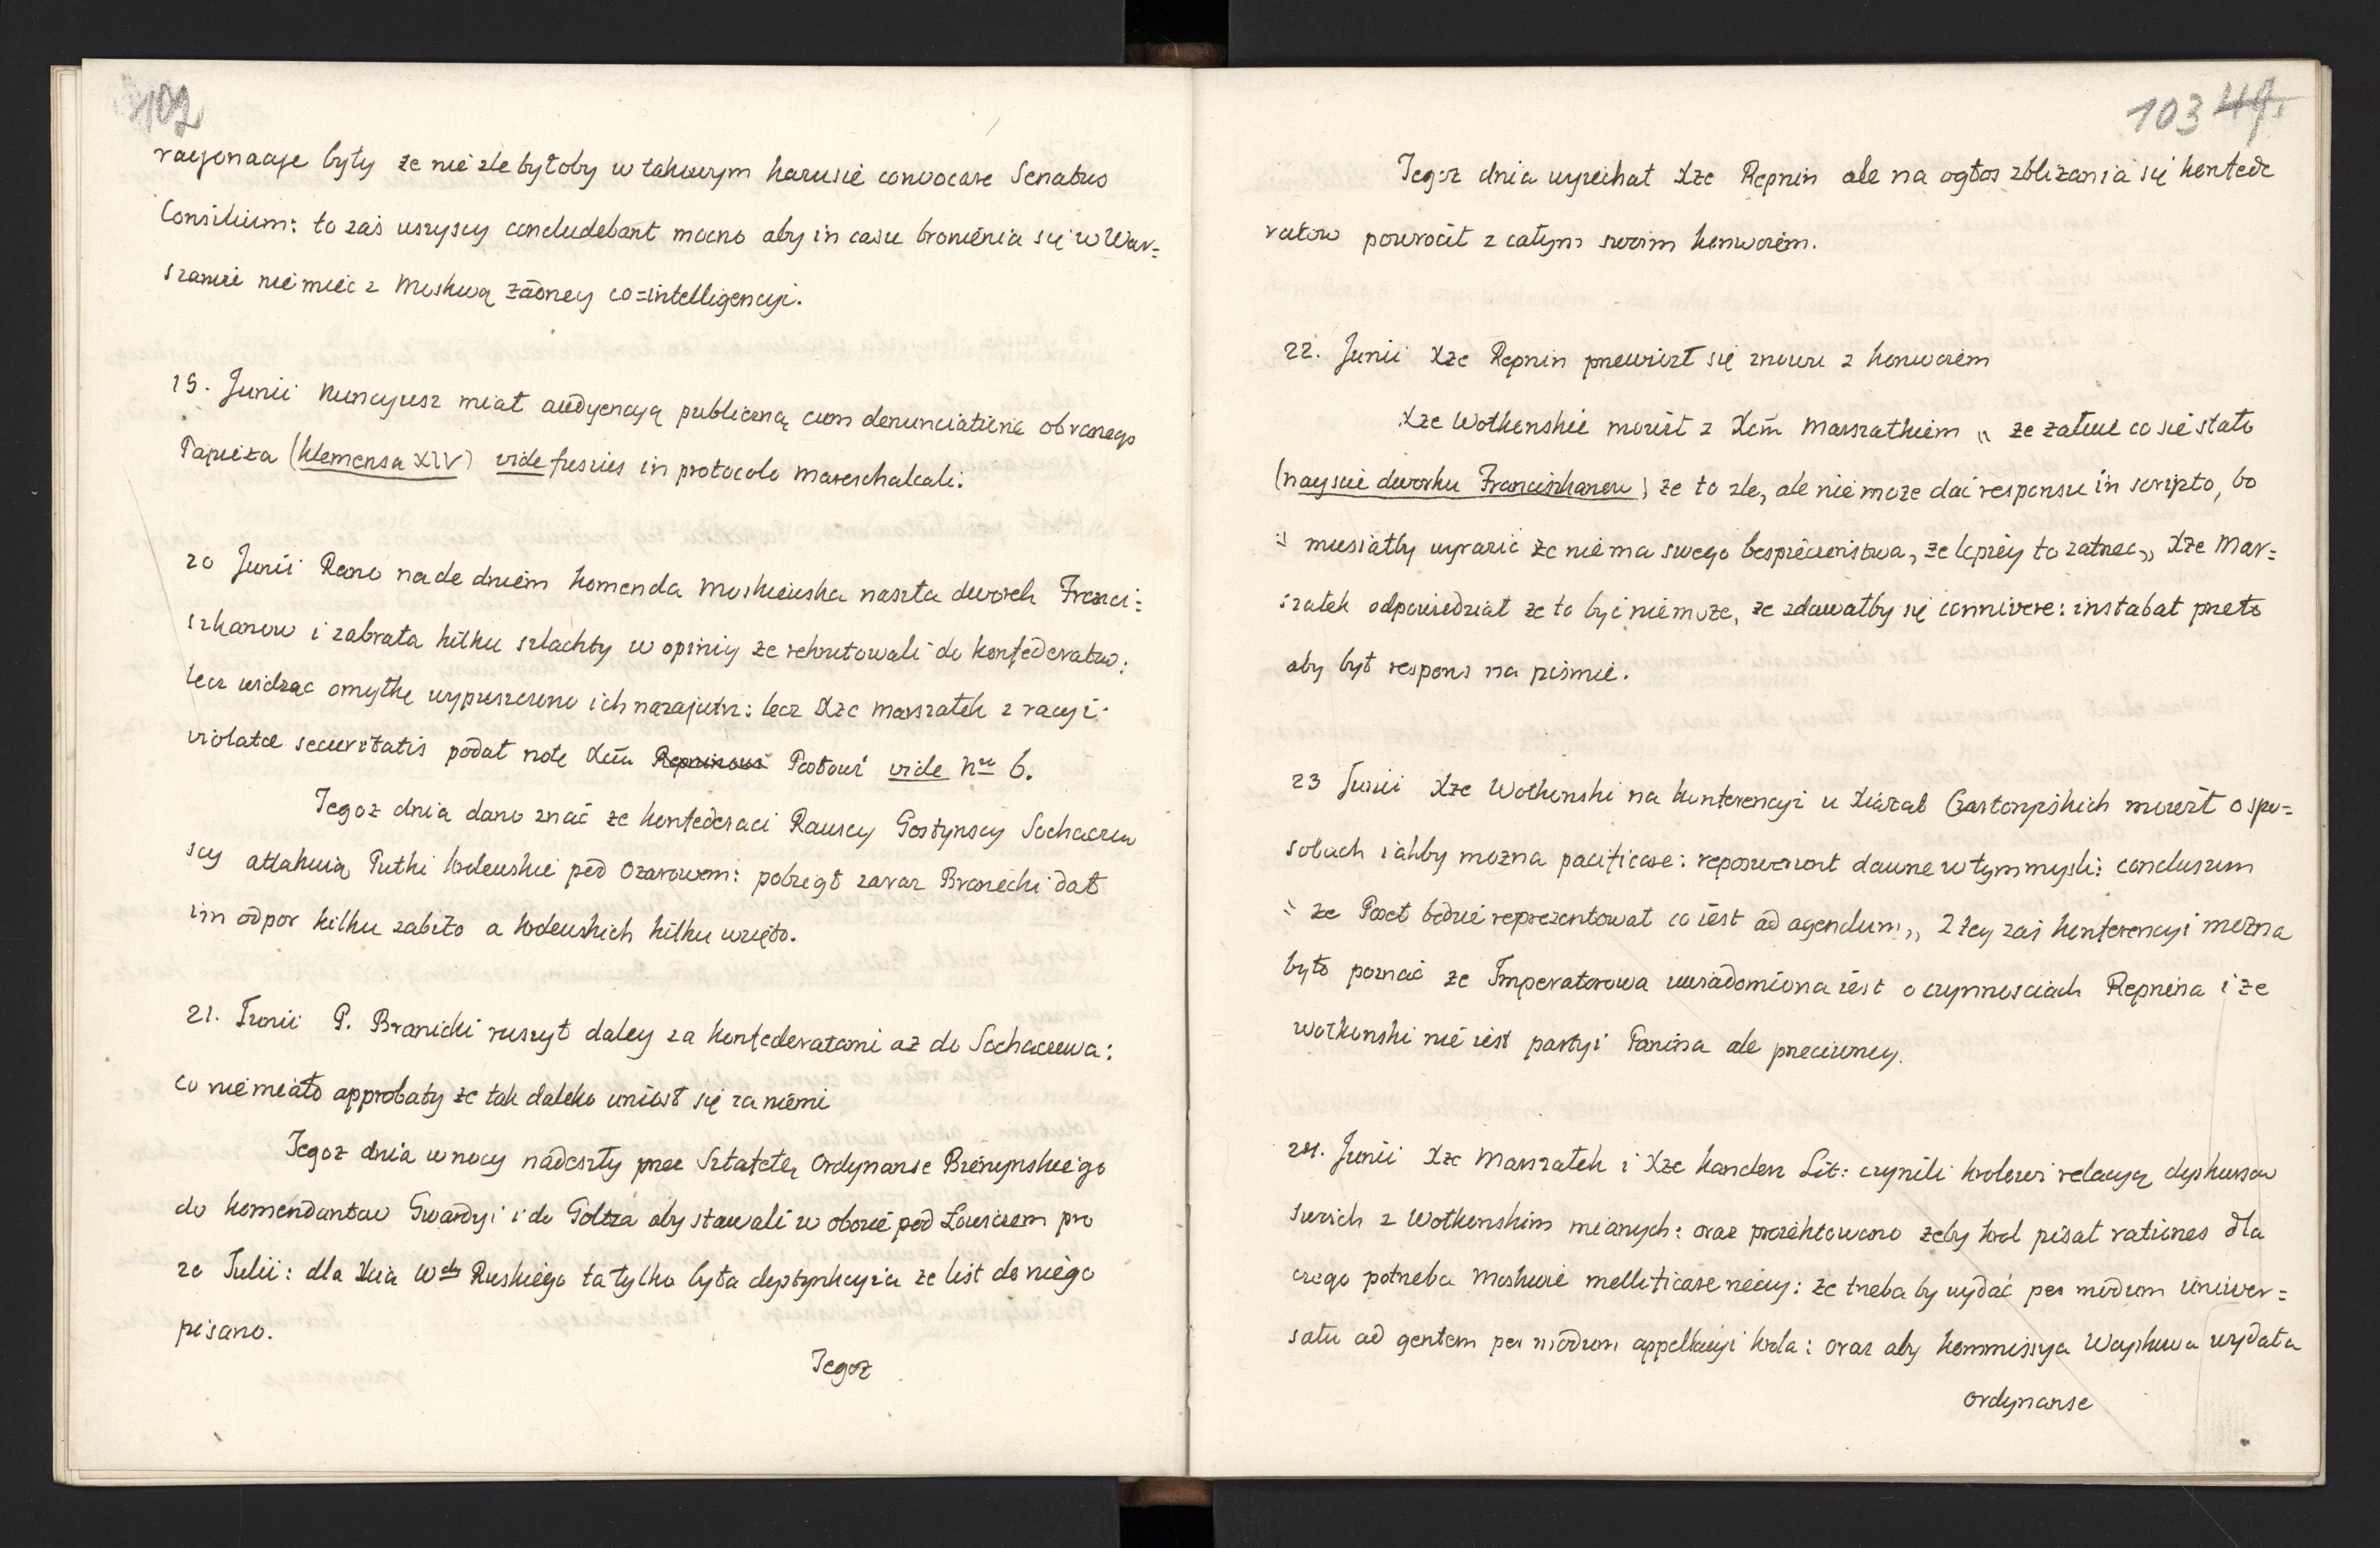 102
racyonacye były że nie zle byłoby w takowym harusie convocare Senatus
Consilium: to zaś wszyscy concludebant mocno aby in casu bronienia się w War=
szawie nie mieć z Moskwą żadney co=intelligencyi.
19. Junii Nuncyusz miał audyencyą publiczną cum denunciatione obranego
Papieża (Klemensa XIV) vide fusius in protocolo mareschalcali.
20 Junii Rano nade dniem komenda Moskiewska naszła dworek Franci=
szkanow i zabrała kilku szlachty w opinij że rekrutowali do konfederatow:
lecz widząc omyłkę wypuszczono ich nazajutrz: lecz Xże Marszałek z racyi
violatae securitatis podał notę Xciu Repninowi Posłowi vide Nro 6.
Tegoż dnia dano znać że konfederaci Rawscy Gostynscy Sochaczew
scy attakuią Pułki krolewskie pod Ożarowem: pobiegł zaraz Branecki dał
im odpor kilku zabito a krolewskich kilku wzięto.
21. Junii P. Branicki ruszył daley za konfederatami aż do Sochaczewa:
co nie miało approbaty że tak daleko uniosł się za niemi
Tegoż dnia w nocy nadeszły przez Sztafetę Ordynanse Bierzynskiego
do komendantow Gwardyi i do Goltza aby stawali w obozie pod Łowiczem pro
20 Julii: dla Xcia Wdy Ruskiego ta tylko była dystynkcyia że list do niego
pisano.
Tegoż
103 47.
Tegoż dnia wyiechał Xże Repnin ale na ogłos zbliżania się konfede
ratow powrocił z całym swoim konwoiem.
22. Junii Xże Repnin przewiozł się znowu z konwoiem
Xże Wołkonskie mowił z Xem Marszałkiem „ że żałuie co sie stało
(nayscie dworku Franciszkanow) że to zle, ale nie może dać responsu in scripto, bo
„ musiałby wyrazić że nie ma swego bespieczeństwa, że lepiey to zatrzeć„ Xże Mar=
szałek odpowiedział że to być nie może, że zdawałby się connivere: instabat przeto
aby był respons na pismie.
23 Junii Xże Wołkonski na konferencyi u Xiążąt Czartoryskich mowił o spo=
sobach iakby można pacificare: reposuerunt dawne w tym mysli: conclusum
„ że Poseł będzie reprezentował co iest ad agendum„ Z tey zaś konferencyi można
było poznać że Imperatorowa uwiadomiona iest o czynnosciach Repnina i że
Wołkonski nie iest partyi Panina ale przeciwney.
24. Junii Xże Marszałek i Xże kanclerz Lit: czynili krolowi relacyą dyskursow
swoich z Wołkonskim mianych: oraz proiektowano żeby krol pisał rationes dla
czego potrzeba Moskwie mellificare rzeczy: że trzeba by wydać per modum uniwer=
sału ad gentem per modum appellacyi krola: oraz aby kommissya Woyskowa wydała
ordynanse